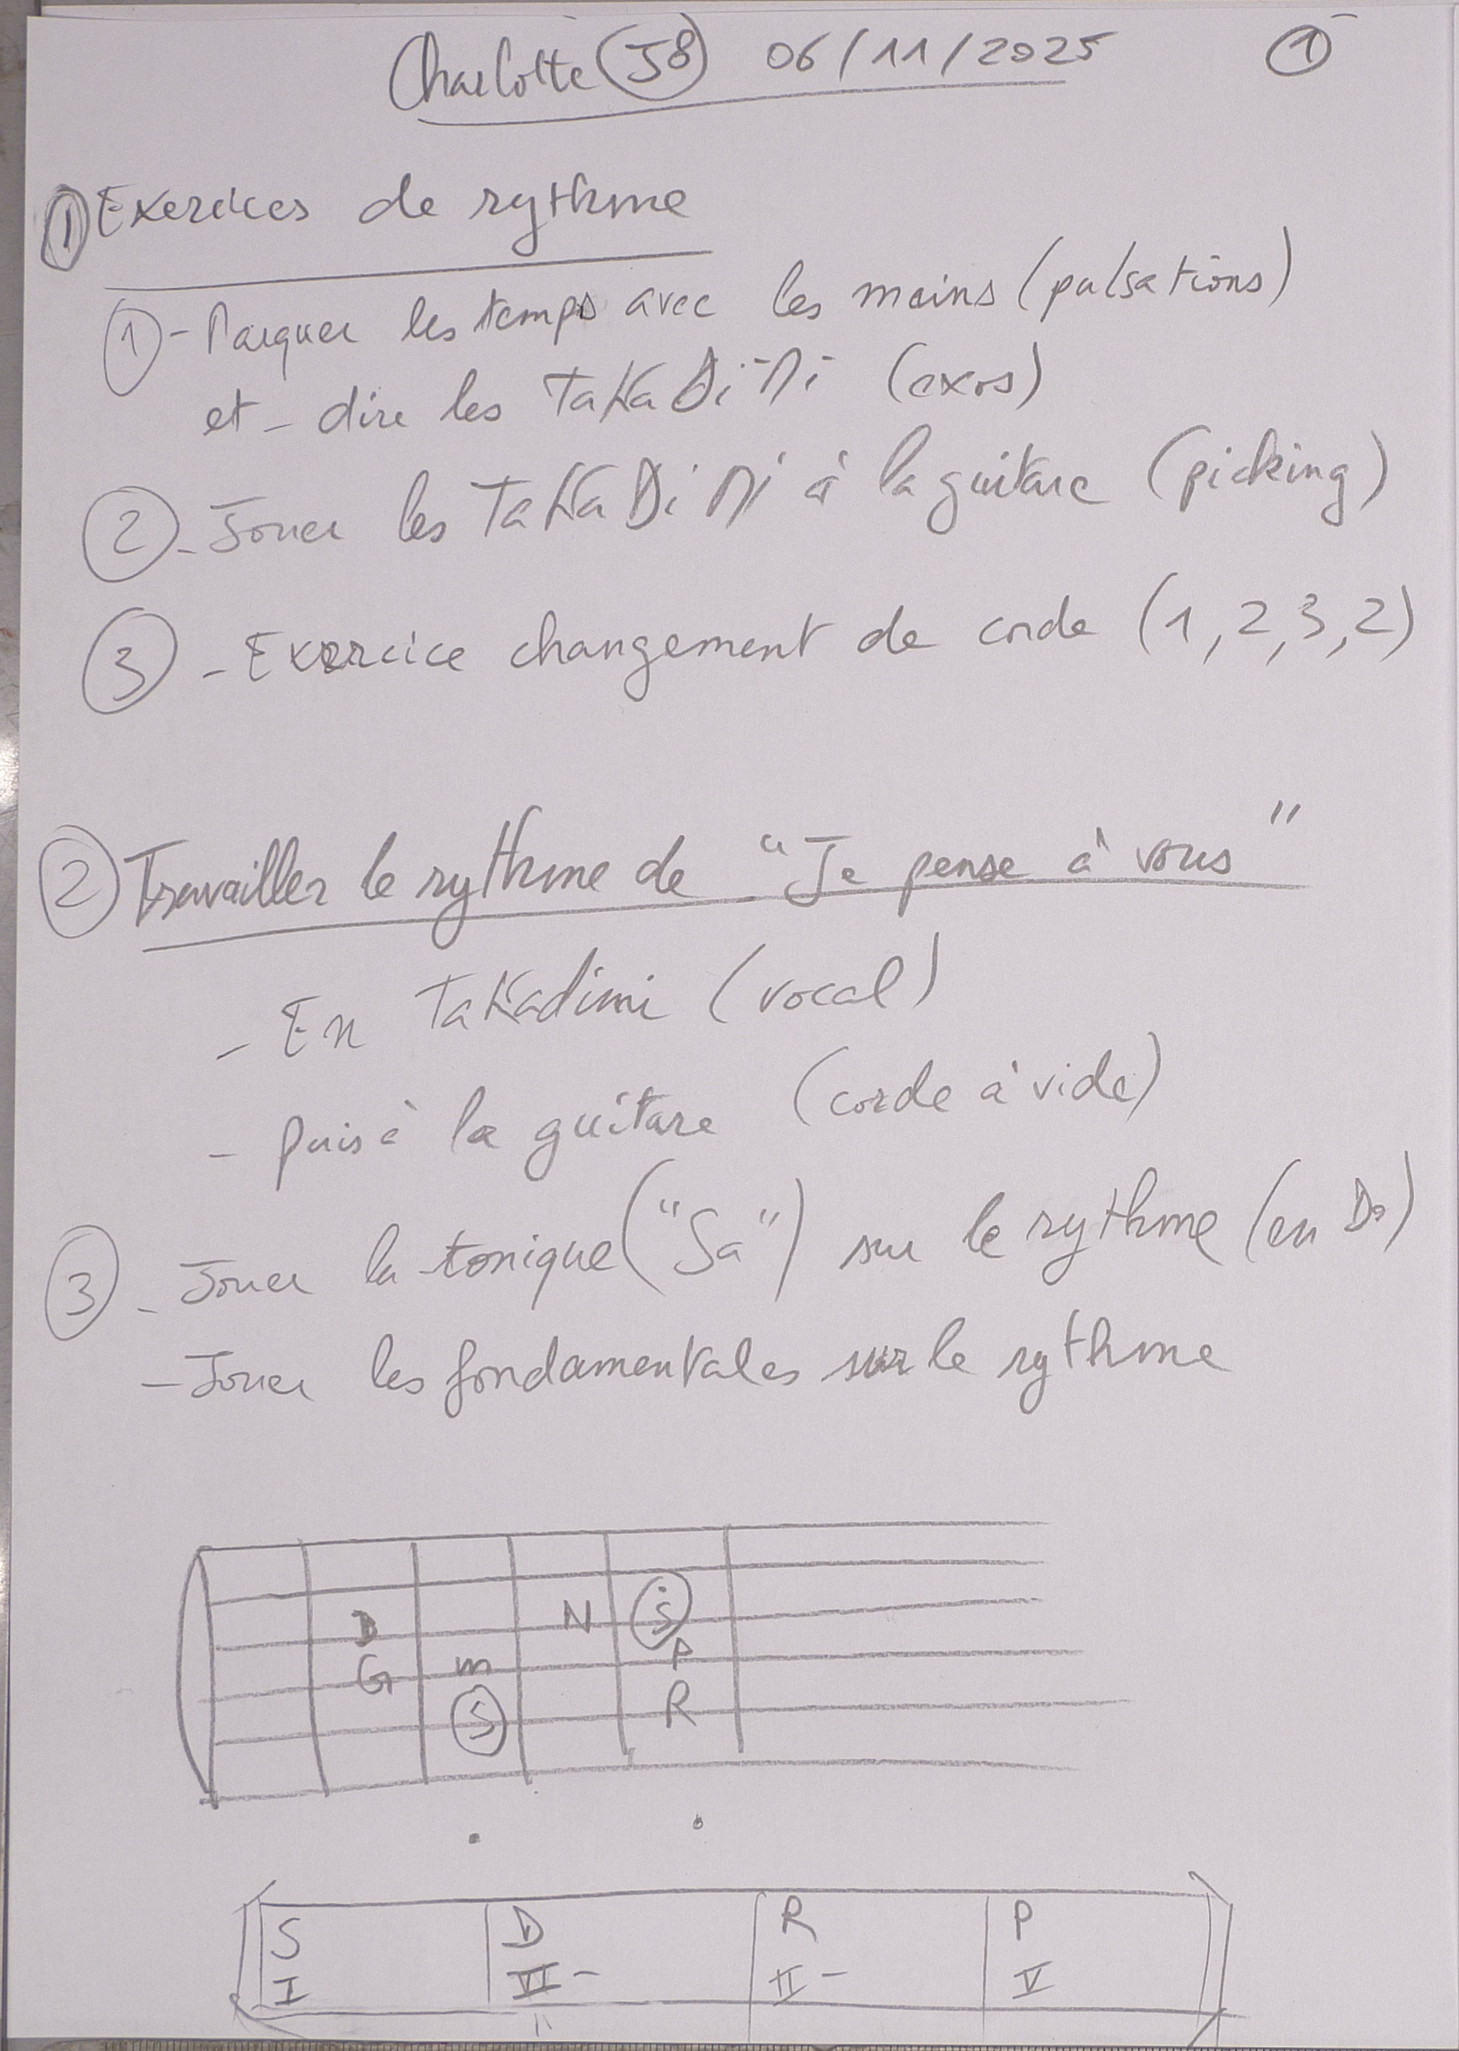 Charlotte (J8) 06/11/2025 1
1 Exercices de rythme
1 - Marquer les temps avec les mains (pulsations)
et - dire les TaKaDiMi (exos)
2 - Jouer les TaKaDiMi à la guitare (picking)
3 - Exercice changement de corde (1, 2, 3, 2)
2 Travailler le rythme de "Je pense à vous"
- En TaKadimi (vocal)
- puis à la guitare (corde à vide)
3 - Jouer la tonique ("Sa") sur le rythme (en Do)
- Jouer les fondamentales sur le rythme
D N Ṡ
G m P
S R
S D R P
I VI- II- V